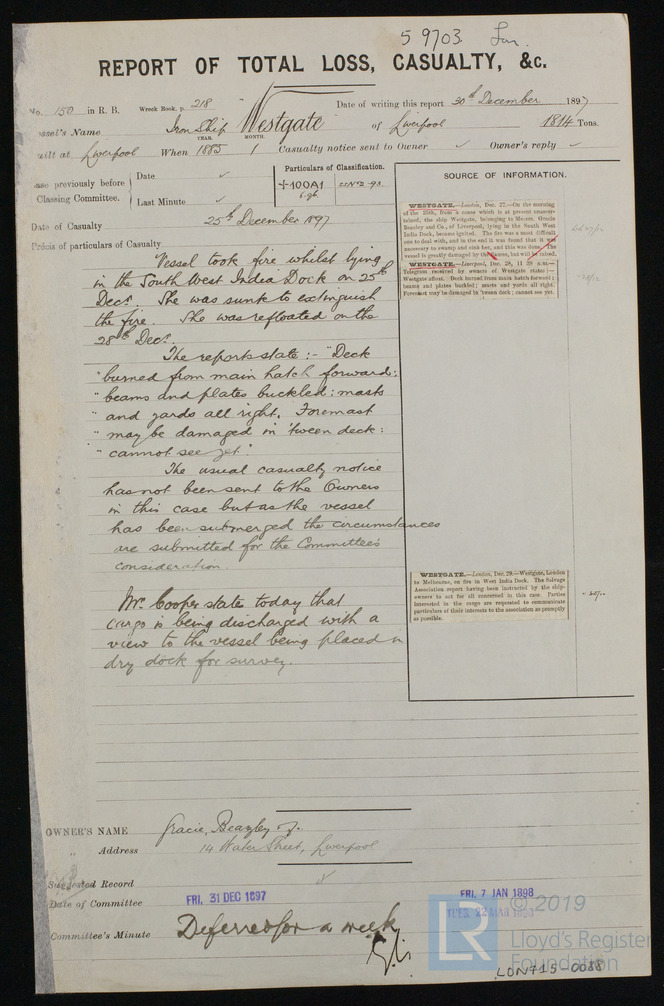 59703
REPORT OF TOTAL LOSS, CASUALTY, &c.
No. 150 in R. B. Wreck Book, p. 218 Date of writing this report 30th December 1897
Vessel's Name Iron Ship Westgate of Liverpool 1814 Tons.
YEAR. MONTH.
uilt at Liverpool When 1885 1 Casualty notice sent to Owner ✓ Owner's reply ✓
ase previously before Classing Committee.
Date ✓
Last Minute ✓
Particulars of Classification.
+100A1
6.96
SOURCE OF INFORMATION.
Date of Casualty 25th December 1897
Précis of particulars of Casualty
Vessel took fire whilst lying
in the South West India Dock on 25th
Decr. She was sunk to extinguish
the fire. She was refloated on the
28th Decr.
The reports state :- "Deck
"burned from main hatch forward:
"beams and plates buckled: masts
"and yards all right. Foremast
"may be damaged in 'tween deck:
"cannot see yet".
The usual casualty notice
has not been sent to the Owners
in this case but as the vessel
has been submerged the circumstances
are submitted for the Committee's
consideration.
Mr. Cooper state today that
cargo is being discharged with a
view to the vessel being placed in
dry dock for survey.
WESTGATE.—London, Dec. 27.—On the morning
of the 25th, from a cause which is at present unascer-
tained, the ship Westgate, belonging to Messrs. Gracie
Beazley and Co., of Liverpool, lying in the South West
India Dock, became ignited. The fire was a most difficult
one to deal with, and in the end it was found that it was
necessary to swamp and sink her, and this was done. The
vessel is greatly damaged by the means, but will be raised.
WESTGATE.—Liverpool, Dec. 28, 11 29 a.m.—
Telegram received by owners of Westgate states :—
Westgate afloat. Deck burned from main hatch forward ;
beams and plates buckled ; masts and yards all right.
Foremast may be damaged in 'tween deck ; cannot see yet.
WESTGATE.—London, Dec. 29.—Westgate, London
to Melbourne, on fire in West India Dock. The Salvage
Association report having been instructed by the ship-
owners to act for all concerned in this case. Parties
interested in the cargo are requested to communicate
particulars of their interests to the association as promptly
as possible.
OWNER'S NAME Gracie, Beazley
" Address 14 Water Street, Liverpool
Suggested Record ✓
Date of Committee FRI. 31 DEC 1897 FRI. 7 JAN 1898
TUES. 22 MAR 1898
Committee's Minute Deferred for a week
© 2019
LR Lloyd's Register
Foundation
LON715-0088